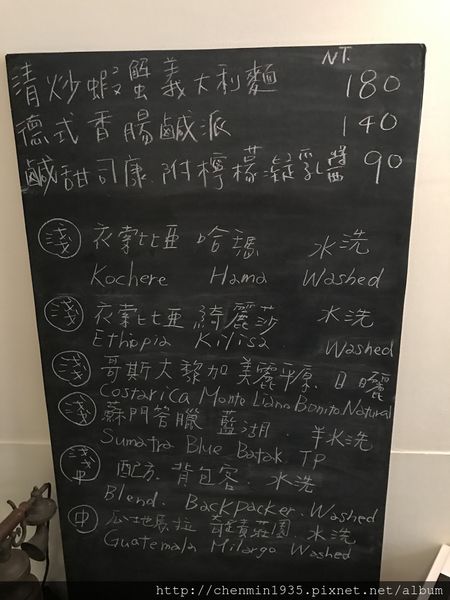 NT.
清炒蝦蟹義大利麵 180
德式香腸鹹派 140
鹹甜司康.附檸檬凝乳醬 90
淺 衣索比亞 哈瑪 水洗
Kochere Hama Washed
淺 衣索比亞 綺麗莎 水洗
Ethiopia Kilisa. Washed
淺 哥斯大黎加 美麗平原. 日曬
Costarica Monte Llano Bonito Natural
淺 蘇門答臘 藍湖. 半水洗
Sumatra Blue Batak TP
淺中 配方. 背包客. 水洗
Blend. Backpacker. Washed
中 瓜地馬拉 奇蹟莊園. 水洗
Guatemala Milargo Washed
http://chenmin1935.pixnet.net/album